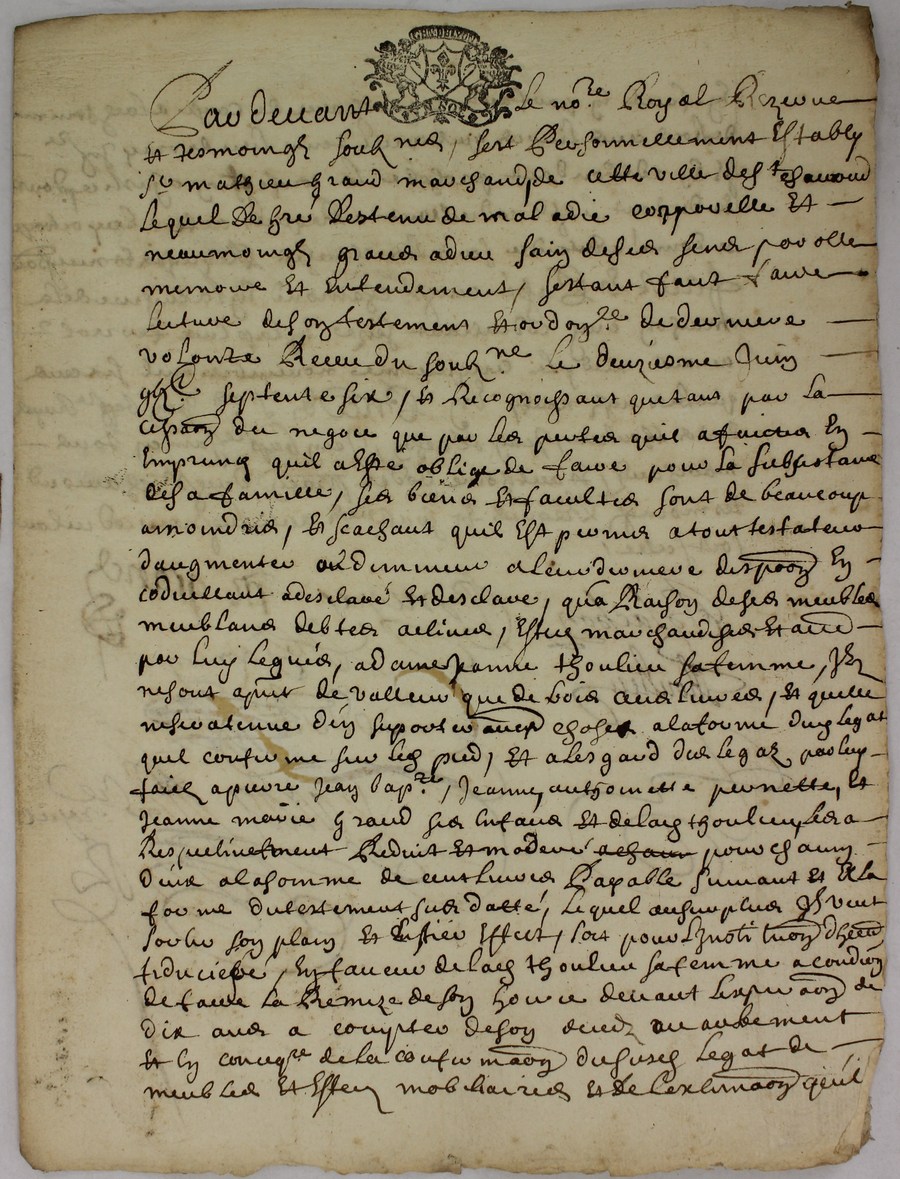 GEN DE LYON
Pardevant le no.re Royal Rezerve
et tesmoingz soubz.nes, sest Personnellement Estably
Sr mathieu grand marchand, de cette ville de st chamond
lequel de gré destenu de maladie corporelle et
neaumoingz graces a dieu sain de ses sens parolle
memoire et entendement, sestant faict faire
lecture de son testement et ordon.ce de derniere
volonte Receu du soubz.ne le deuziesme Juin
septente six, et Recognoissant que tant par la
cessaon du negoce que par les pertes quil a faictes En
Emprunz quil a esté oblige de faire pour la subsistance
de sa famille, ses biens et facultes sont de beaucoup
amoindries, et scachant quil est permis a tout testateur
daugmenter ou diminuer a leur derniere dispoon En
codicillant a desclaré et desclare, qua Raison de ses meubles
meublans debtes actives, effectz marchandises et
par luy legués, a dame Jeanne thoulieu sa femme, Ilz
ne sont apnt de valleur que de trois cens livres, et quelle
ne sera tenue den suporter chose a la forme dud legat
quil confirme sur led pied, et a lesgard des legaz par luy
faictz a pierre Jean bap.te, Jeanne, anthoinette pernette, et
Jeanne marie grand ses enfans et de lad thoulieu, les a
Respectivement Reduit et moderé pour chacun
deux a la somme de cent livres Payable suivant et a la
forme du testement sus datté, lequel au surplus Il veut
sortir son plain et entier effect, soit pour linstituon dhered
fiduciere, en faveur de lad thoulieu sa femme a condion
de faire la Remize de son hoirie devant lexpiraon de
dix ans a compter de son decedz ou autrement
et en conseq.ce de la confirmaon du susd legat de
meubles et effectz mobiliaires et de lextimaon quil